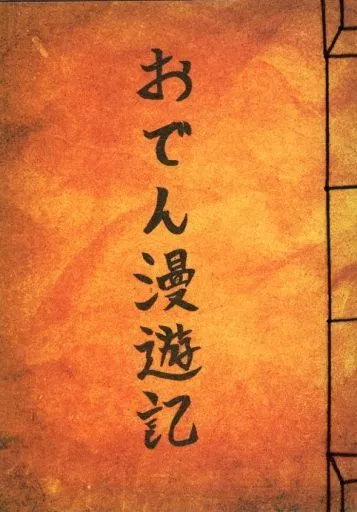 おでん漫遊記